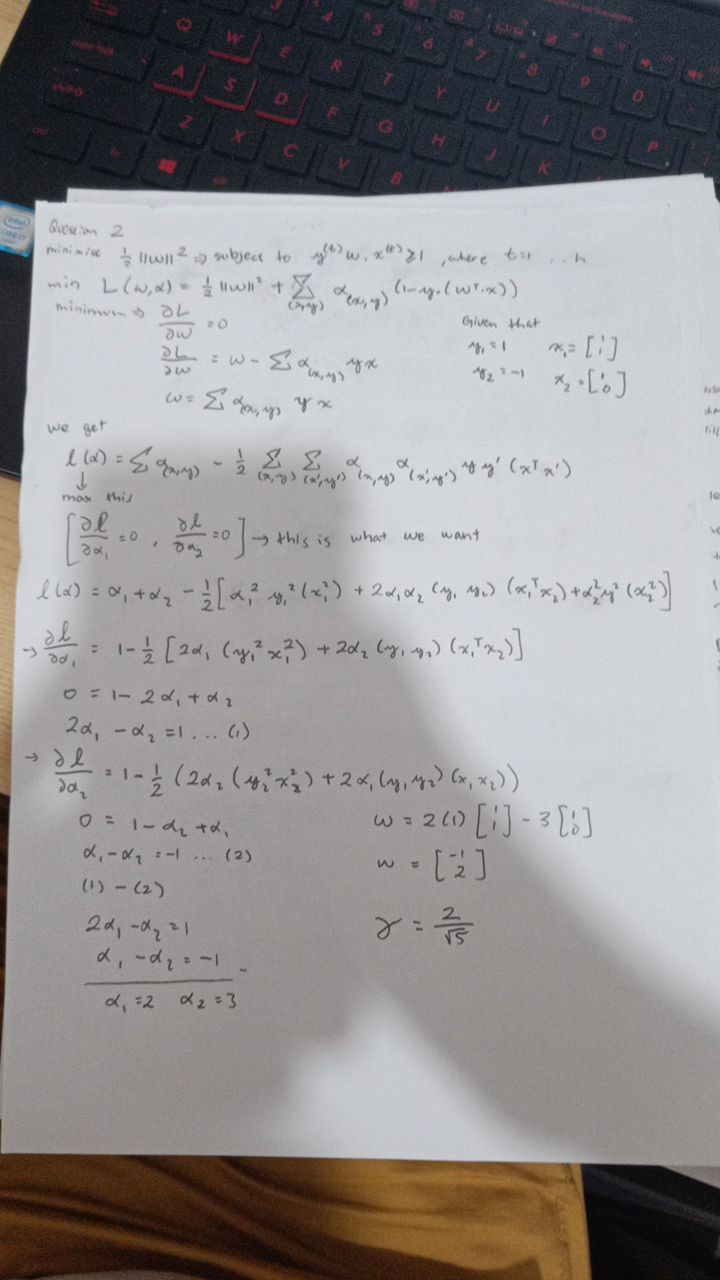 Question 2
minimise ½ ||w||² ⇒ subject to y⁽ᵗ⁾ w . x⁽ᵗ⁾ ≥ 1 , where t=1 .. n
min L(w,α) = ½ ||w||² + Σ_(x,y) α_(x,y) (1-y.(wᵀ.x))
minimum ⇒ ∂L/∂w = 0
∂L/∂w = w - Σ α_(x,y) y x
w = Σ α_(x,y) y x
Given that
y₁ = 1 x₁ = [1 1]
y₂ = -1 x₂ = [1 0]
we get
l(α) = Σ α_(x,y) - ½ Σ_(x,y) Σ_(x',y') α_(x,y) α_(x',y') y y' (xᵀ x')
↓
max this
[∂l/∂α₁ = 0 , ∂l/∂α₂ = 0] → this is what we want
l(α) = α₁ + α₂ - ½ [α₁² y₁² (x₁²) + 2α₁α₂ (y₁ y₂) (x₁ᵀx₂) + α₂² y² (x₂²)]
→ ∂l/∂α₁ = 1 - ½ [2α₁ (y₁² x₁²) + 2α₂ (y₁ y₂) (x₁ᵀx₂)]
0 = 1 - 2α₁ + α₂
2α₁ - α₂ = 1 ... (1)
→ ∂l/∂α₂ = 1 - ½ (2α₂ (y₂² x₂²) + 2α₁ (y₁ y₂) (x₁ x₂))
0 = 1 - α₂ + α₁
α₁ - α₂ = -1 ... (2)
(1) - (2)
2α₁ - α₂ = 1
α₁ - α₂ = -1 -
α₁ = 2 α₂ = 3
w = 2(1) [1 1] - 3 [1 0]
w = [-1 2]
γ = 2/√5
Q W E R T Y U I O P
A S D F G H J K
Z X C V B
intel
CORE i7